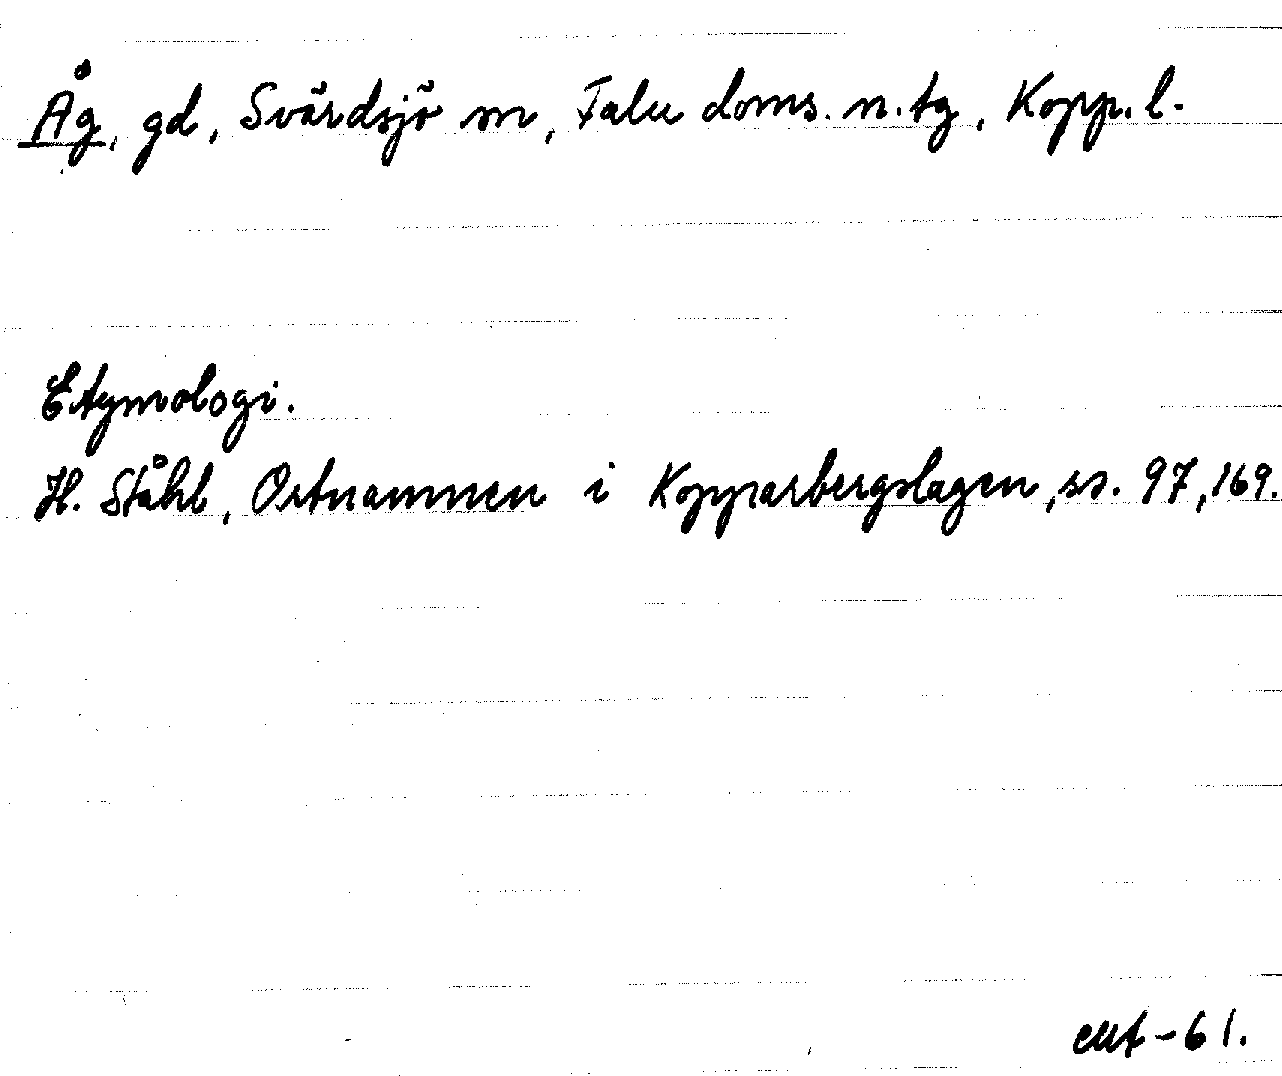 Åg, gd, Svärdsjö sn, Falu doms. n. tg, Kopp. l.
Etymologi.
H. Ståhl, Ortnamnen i Kopparbergslagen, ss. 97, 169.
-61.